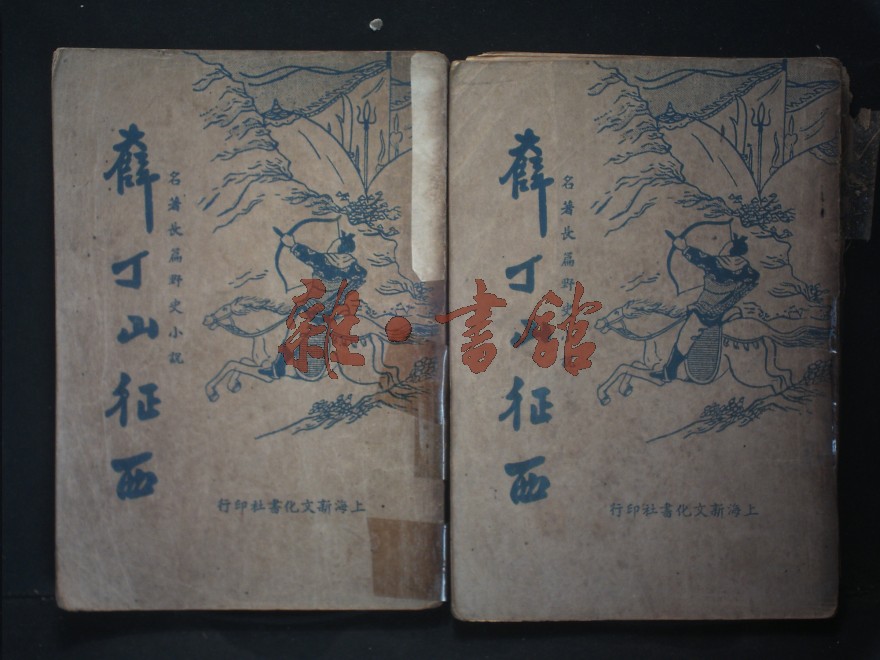 薛丁山征西
名著長篇野史小說
行印社書化文新海上
薛丁山征西
名著長篇野史
行印社書化文新海上
雜·書館